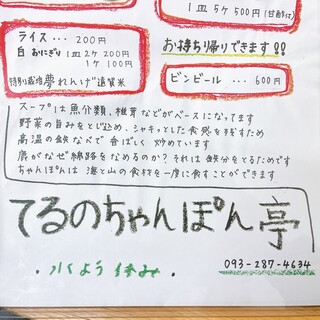 1皿5ヶ500円(甘酢付)
ライス … 200円
白おにぎり 1皿2ヶ200円
1ヶ100円
特別栽培 夢れんげ 遠賀米
お持ち帰りできます!!
ビンビール … 600円
スープは魚介類、椎茸などがベースになってます
野菜の旨みをとじ込め、シャキッとした食感を残すため
高温の鉄なべで 香ばしく 炒めています
鹿がなぜ線路をなめるのか? それは 鉄分をとるためです
ちゃんぽんは 海と山の食材を一度に食すことができます
てるのちゃんぽん亭
・水よう休み・
093-287-4634